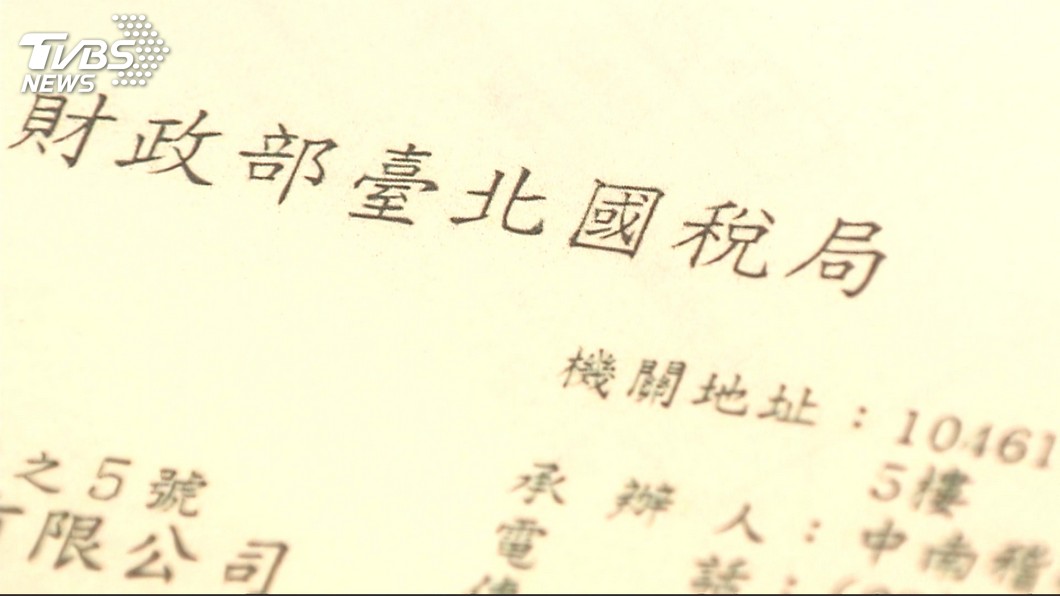 TVBS
NEWS
財政部臺北國稅局
機關地址：10461
5樓
之5號
承辦人：中南稽
有限公司
電話：(
傳